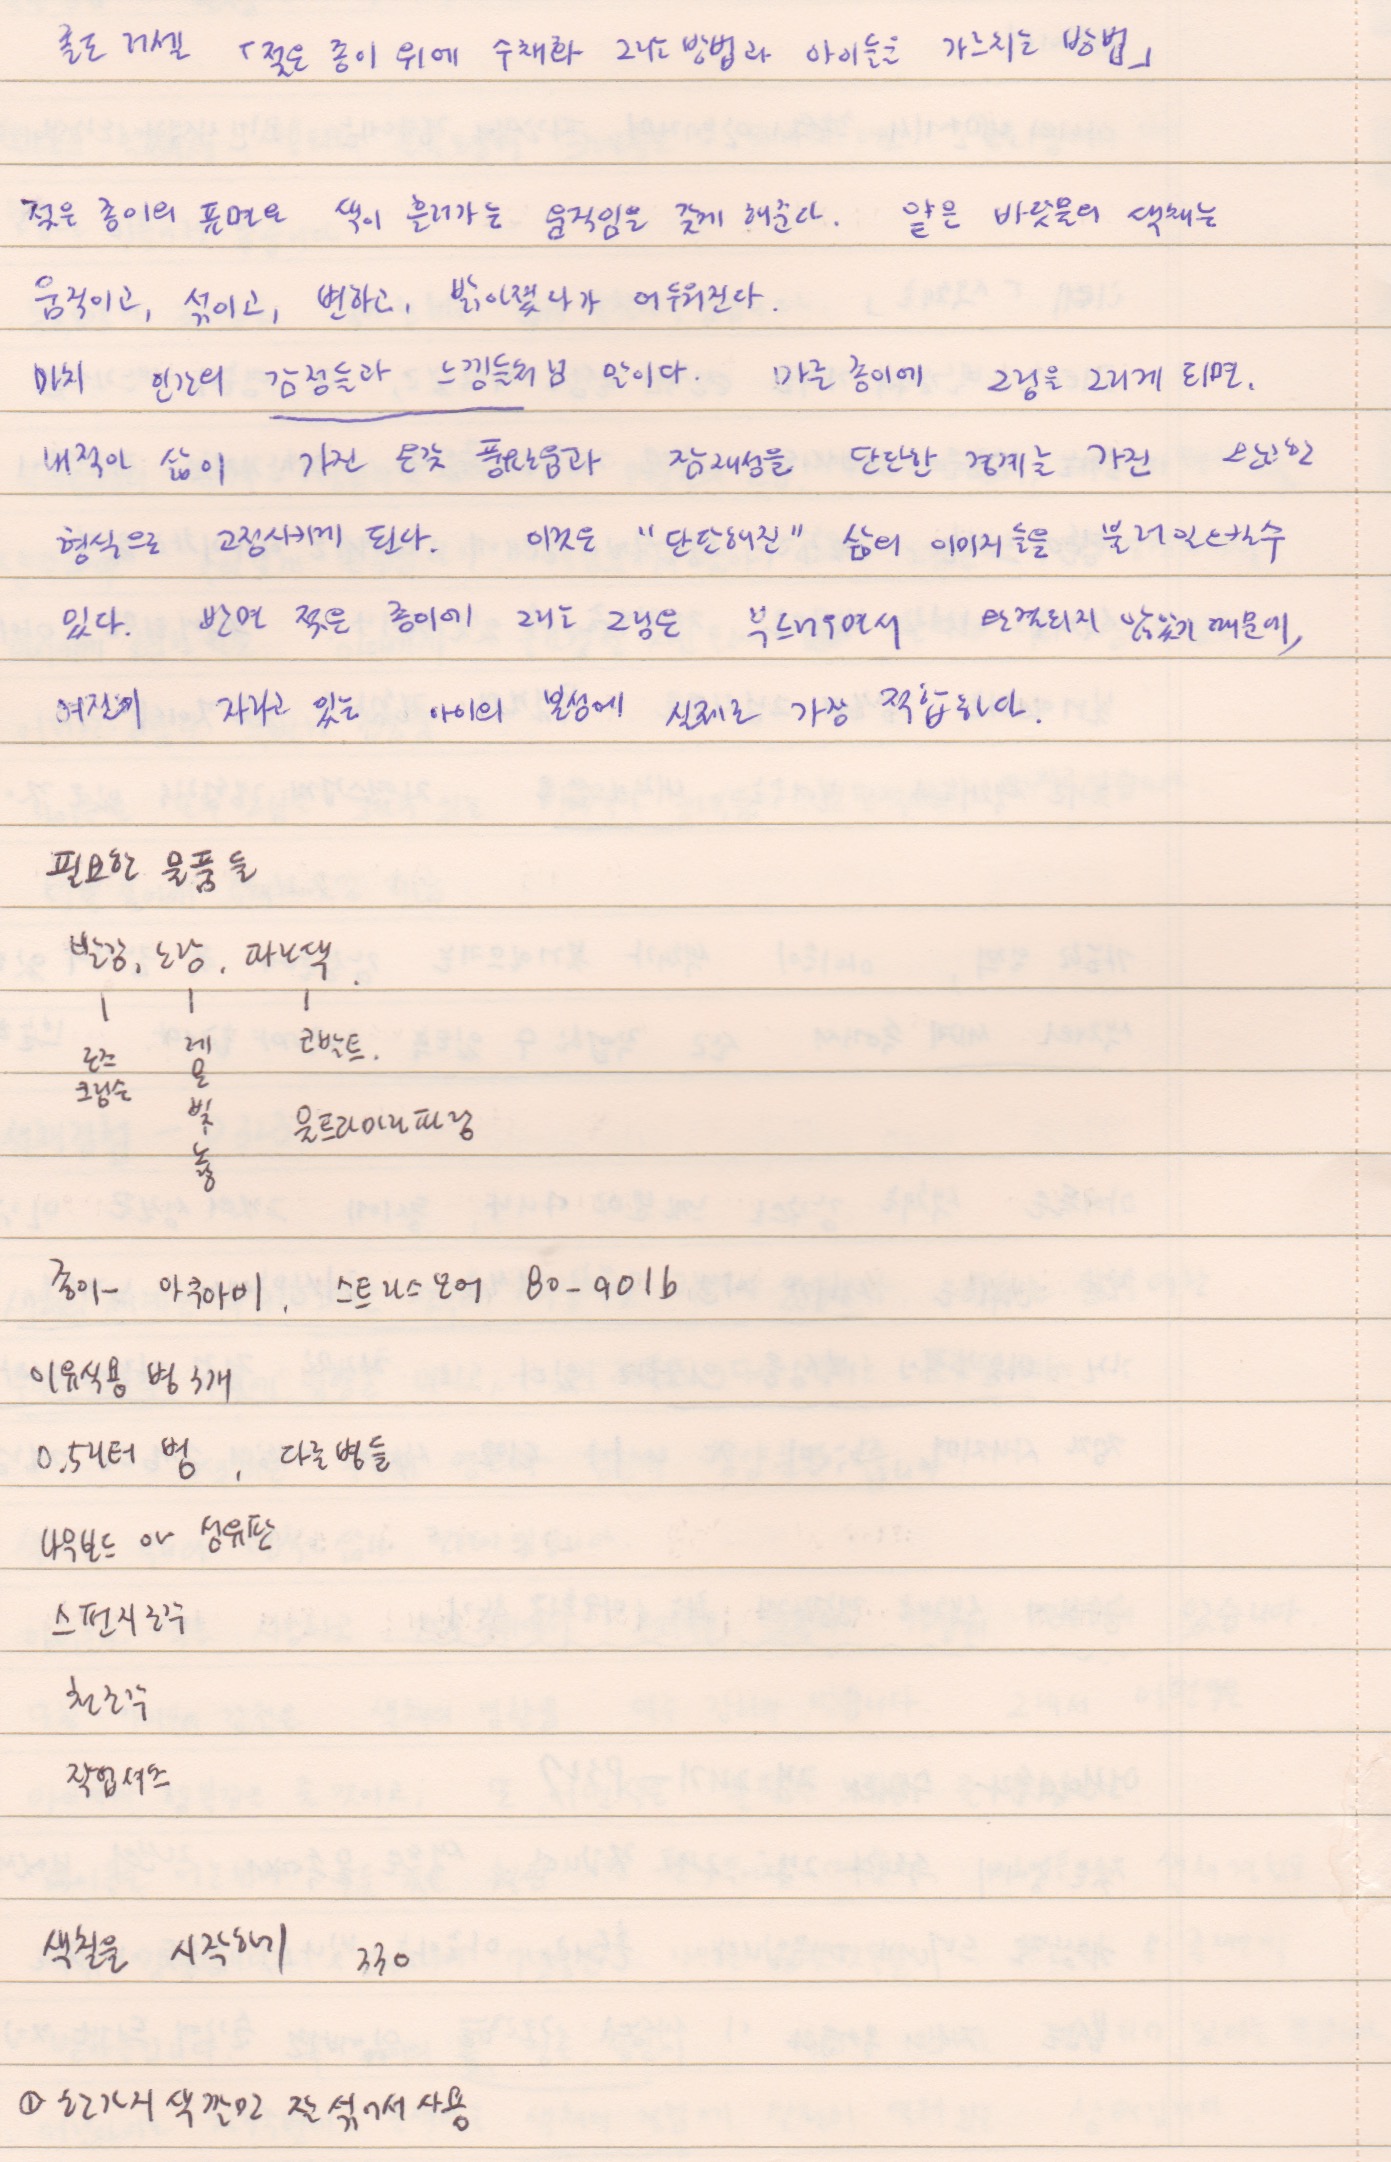 롤드 러셀 「젖은 종이 위에 수채화 그리는 방법과 아이들을 가르치는 방법」
젖은 종이의 표면은 색이 흘러가는 움직임을 갖게 해준다. 얕은 바닷물의 색채는
움직이고, 섞이고, 변하고, 밝아졌다가 어두워진다.
마치 인간의 감정들과 느낌들처럼 말이다. 마른 종이에 그림을 그리게 되면.
내적인 삶이 가진 온갖 풍요로움과 잠재성을 단단한 경계를 가진 완고한
형식으로 고정시키게 된다. 이것은 "단단해진" 삶의 이미지들을 불러일으킬 수
있다. 반면 젖은 종이에 그리는 그림은 부드러우면서 완결되지 않았기 때문에,
여전히 자라고 있는 아이의 본성에 실제로 가장 적합하다.
필요한 물품들
빨강, 노랑, 파랑색.
로즈 크림슨
레몬빛 노랑
코발트.
울트라마린파랑
종이- 아쿠아비, 스트라스모어 80-90lb
이유식용 병 3개
0.5리터 병, 다른 병들
나무보드 or 섬유판
스펀지조각
천조각
작업셔츠
색칠을 시작하기 330
① 한가지 색깔만 잘 섞어서 사용